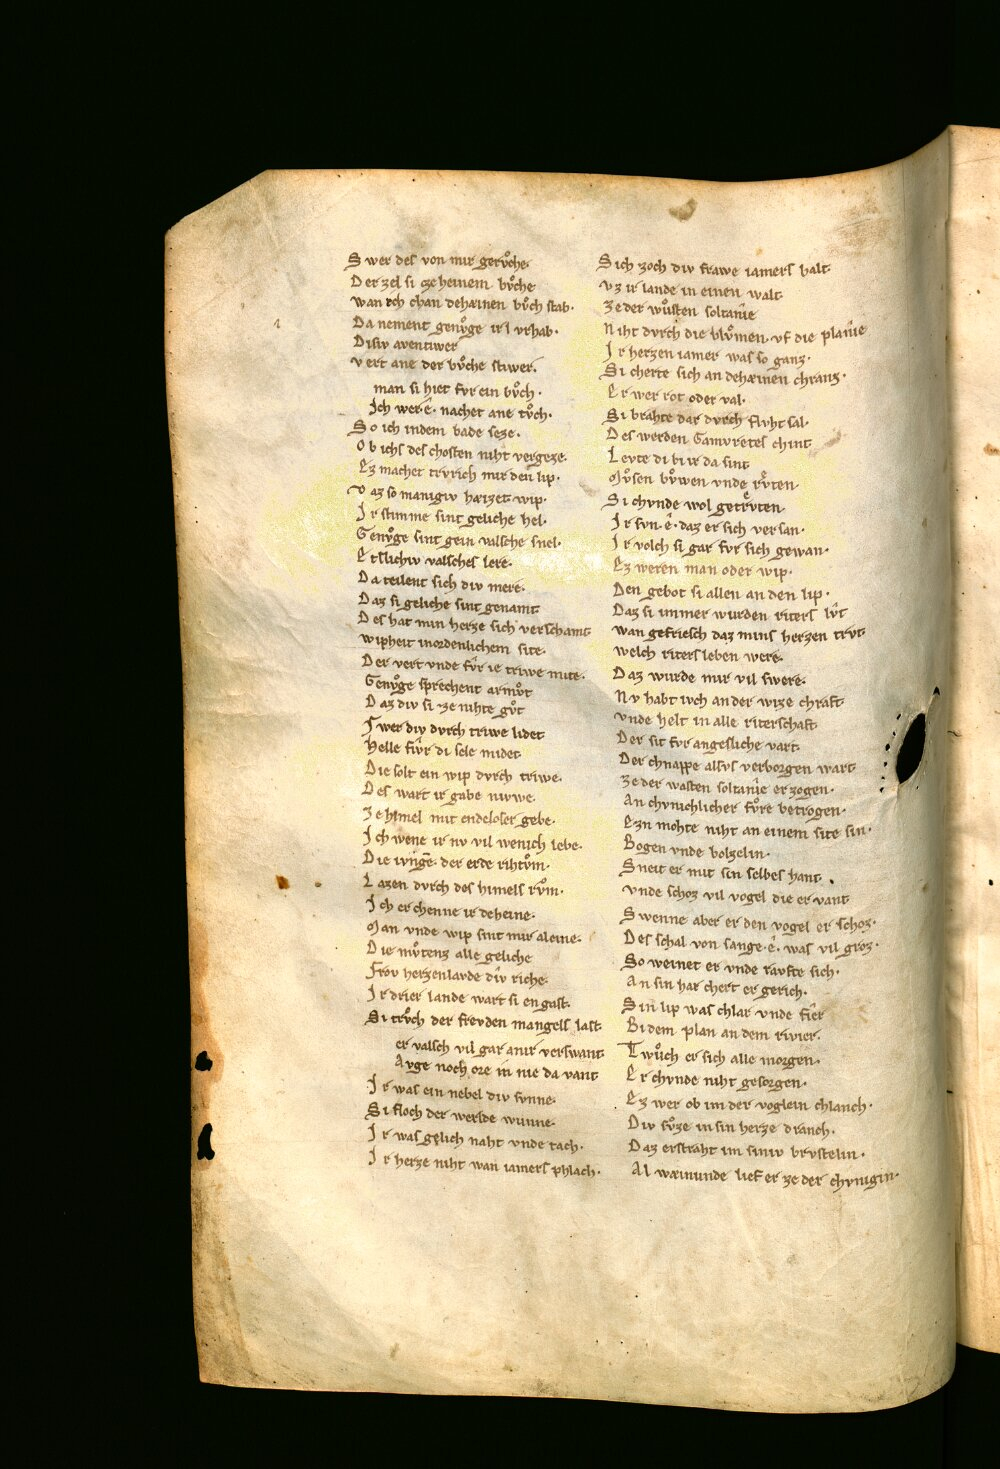 Swer des von mir gerůche·
Der zel si ze heinem bůche
wan ich chan dehæinen bůch stab·
Da nement genůge ir l vrhab·
Disiv aventiwer
vert ane der bůche stiwer·
man si hiet fvr ein bůch·
Ich wer·e·nachet ane tůch·
So ich indem bade seze·
Ob ichs des chosten niht vergeze·
Ez machet trvrich mir den lip·
Vaz so manigiv hæizet wip·
Ir stimme sint geliche hel·
Genůge sint gein valsche snel·
Etslichiv valsches lere·
Da teilent sich div mere·
Daz si geliche sint genamt
Des hat min herze sich verschamt
wipheit inordenlichem site·
Der vert vnde fůr ie triwe mite·
Genůge sprechent armůt
Daz div si ze nihte gůt
Swer div dvrch triwe lidet
Helle fiwr di sele midet
Die solt ein wip dvrch triwe·
Des wart ir gabe niwe·
Ze himel mit endeloser gebe·
Ich wene ir nv vil wenich lebe·
Die ivnge·der erde rihtům·
Lazen dvrch des himels rům·
Ich erchenne ir deheine·
Man vnde wip sint mir aleine·
Die můtenz alle geliche
Frov herzenlavde div riche·
Ir drier lande wart si en gast·
Si trůch der frevden mangels last
er valsch vil gar anir verswant
Avge noch ore in nie da vant
Ir was ein nebel div svnne·
Si floch der werlde wunne·
Ir was gelich naht vnde tach·
Ir herze niht wan iamers phlach·
Sich zoch div frawe iamers balt
vz ir lande in einen walt
Zeder wůsten soltanîe
Niht dvrch die blůmen vf die planîe
Ir herzen iamer was so ganz·
Si cherte sich an dehæinen chranz·
Er wer rot oder val·
Si brahte dar dvrch flvht sal·
Des werden Gamvretes chint
Levte di bi ir da sint
Můsen bůwen vnde růten·
Si chvnde wol getrvten·
Ir svn·e·daz er sich versan·
Ir volch si gar fvr sich gewan·
Ez weren man oder wip·
Den gebot si allen an den lip·
Daz si immer wurden riters lvt
wan gefriesch daz mins herzen trvt
welch riters leben were·
Daz wurde mir vil swere·
Nv habt ivch an der wize chraft
vnde helt in alle riterschaft
Der sit fvr angesliche vart
Der chnappe alsvs verborgen wart
Zeder wasten soltanîe er zogen·
An chvnichlicher fůre betrogen·
Ezn mohte niht an einem site sin·
Bogen vnde bolzelin·
Sneit er mit sin selbes hant
vnde schoz vil vogel die er vant
Swenne aber er den vogel er schoz·
Des schal von sange·e·was vil groz·
So weinet er vnde ravfte sich·
An sin har chert er gerich·
Sin lip was chlar vnde fier
Bi dem plan an dem rivier·
Twůch er sich alle morgen·
Er chvnde niht gesorgen·
Ez wer ob im der voglein chlanch·
Div sůze in sin herze dranch·
Daz erstraht im siniv brvstelin·
Al wæinunde lief er ze der chvnigin·